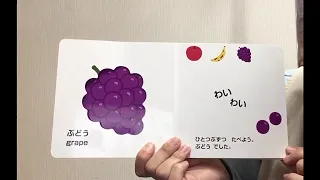 ぶどう
grape
わい
わい
ひとつぶずつ たべよう。
ぶどう でした。